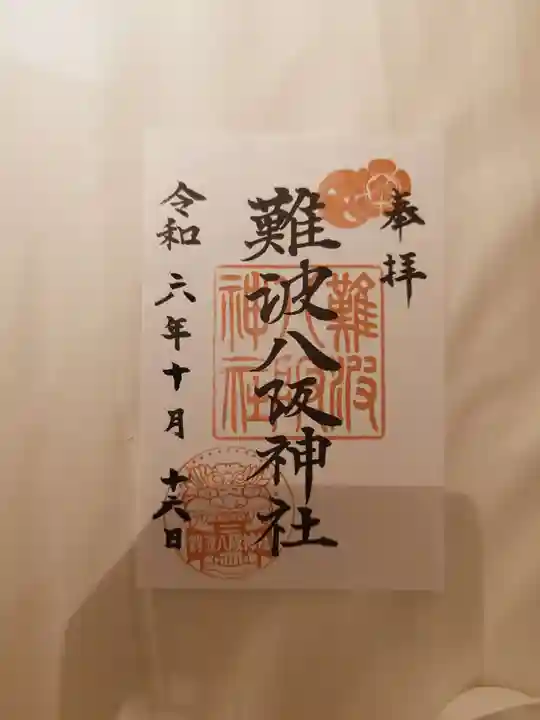 奉拝
難波八阪神社
難波
八阪
神社
令和六年十月十六日